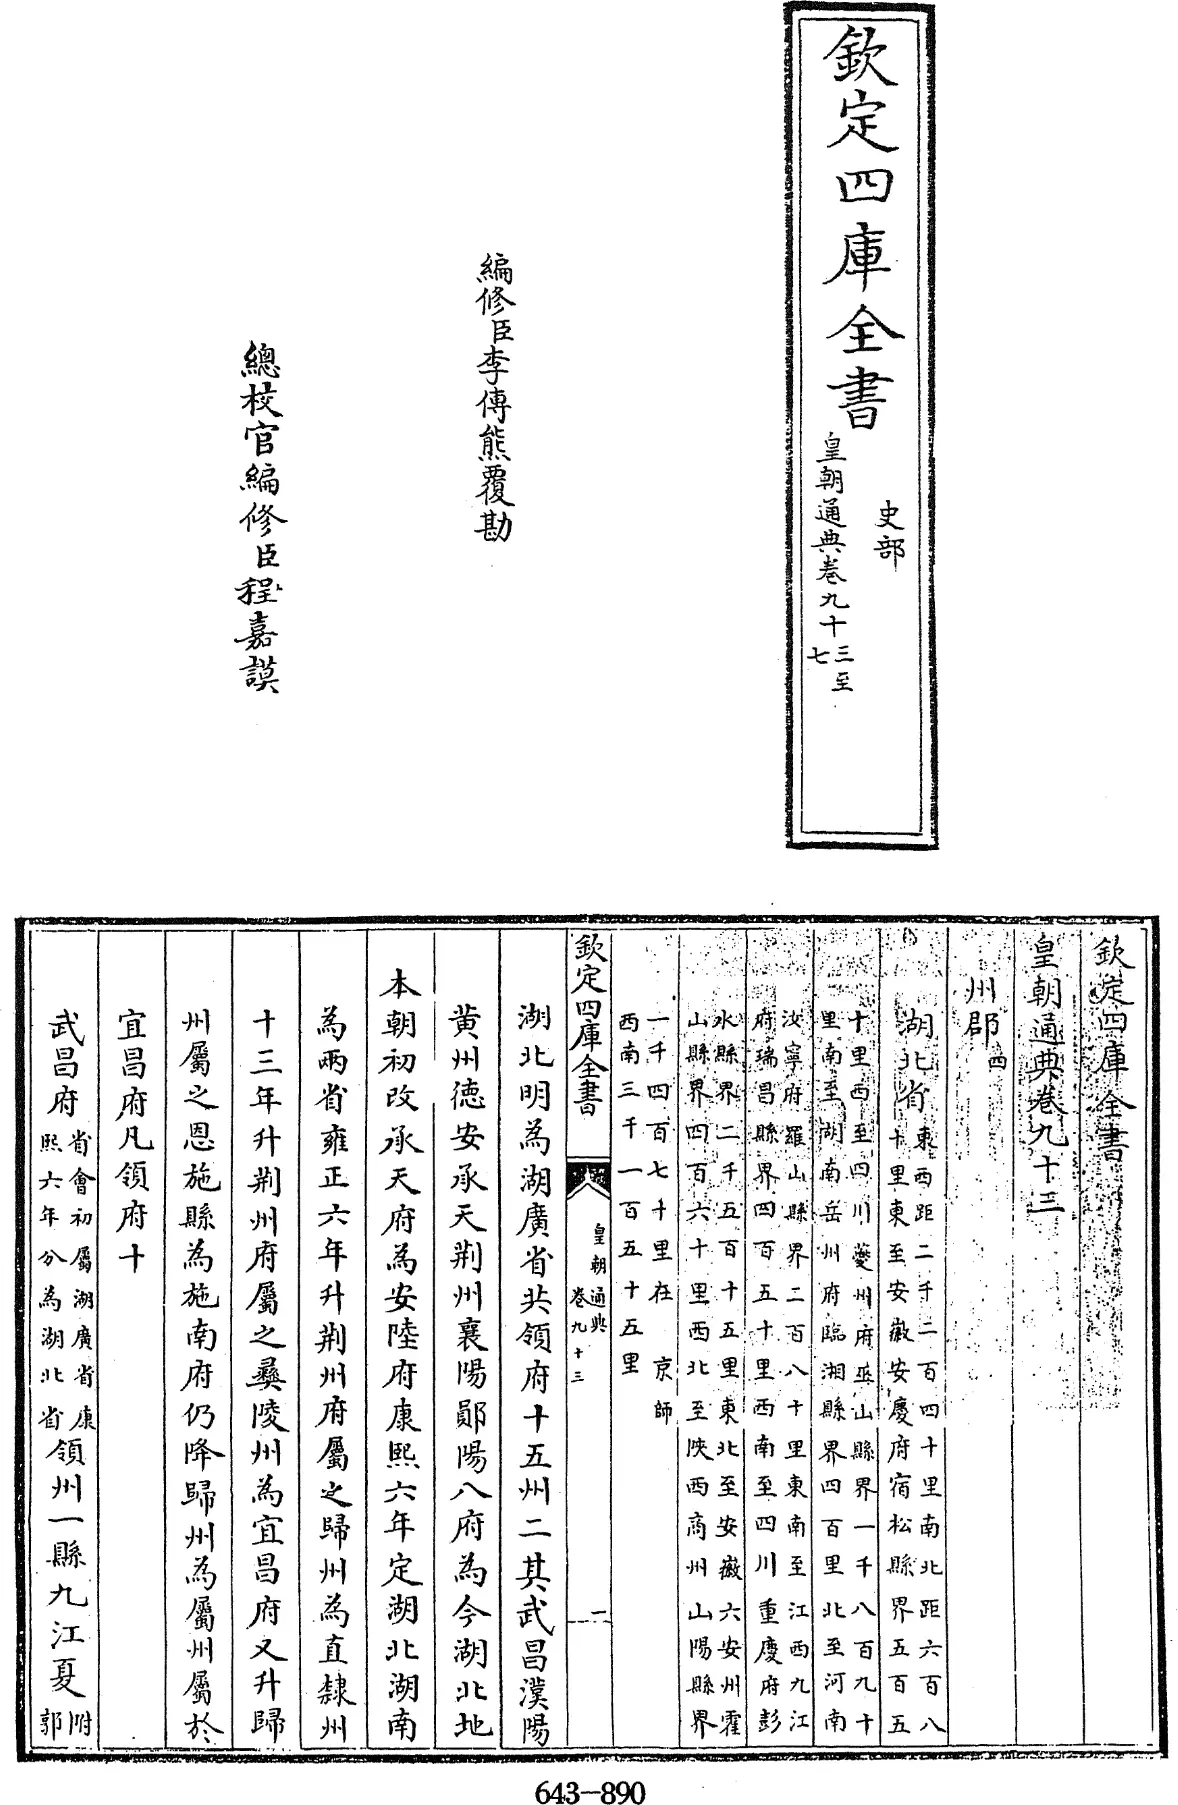 欽定四庫全書
史部
皇朝通典卷九十三至
七
編修臣李傳熊覆勘
總校官編修臣程嘉謨
欽定四庫全書
皇朝通典卷九十三
州郡四
湖北省東西距二千二百四十里南北距六百八
十里東至安徽安慶府宿松縣界五百五
十里西至四川夔州府巫山縣界一千八百九十
里南至湖南岳州府臨湘縣界四百里北至河南
汝寧府羅山縣界二百八十里東南至江西九江
府瑞昌縣界四百五十里西南至四川重慶府彭
水縣界二千五百十五里東北至安徽六安州霍
山縣界四百六十里西北至陝西商州山陽縣界
一千四百七十里在京師
西南三千一百五十五里
欽定四庫全書
皇朝通典
卷九十三
一
湖北明為湖廣省共領府十五州二其武昌漢陽
黄州德安承天荆州襄陽鄖陽八府為今湖北地
本朝初改承天府為安陸府康熙六年定湖北湖南
為兩省雍正六年升荆州府屬之歸州為直隸州
十三年升荆州府屬之彝陵州為宜昌府又升歸
州屬之恩施縣為施南府仍降歸州為屬州屬於
宜昌府凡領府十
武昌府省會初屬湖廣省康
熙六年分為湖北省領州一縣九江夏附
郭
643-890